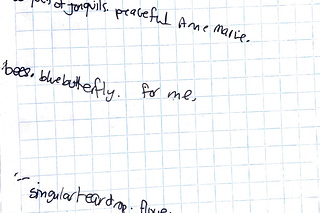 of jonquills. peaceful Anne marie.
bees. blue butterfly. for me,
singular teardrop.